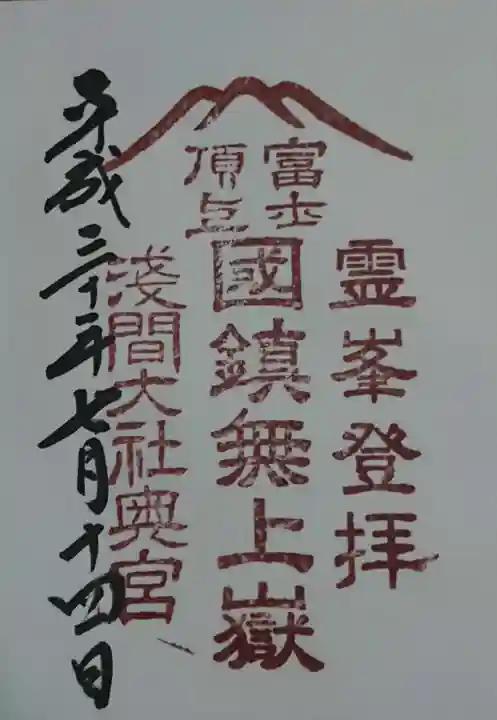 富士
頂上
霊峯登拝
國鎮無上嶽
浅間大社奥宮
平成三十年七月十四日